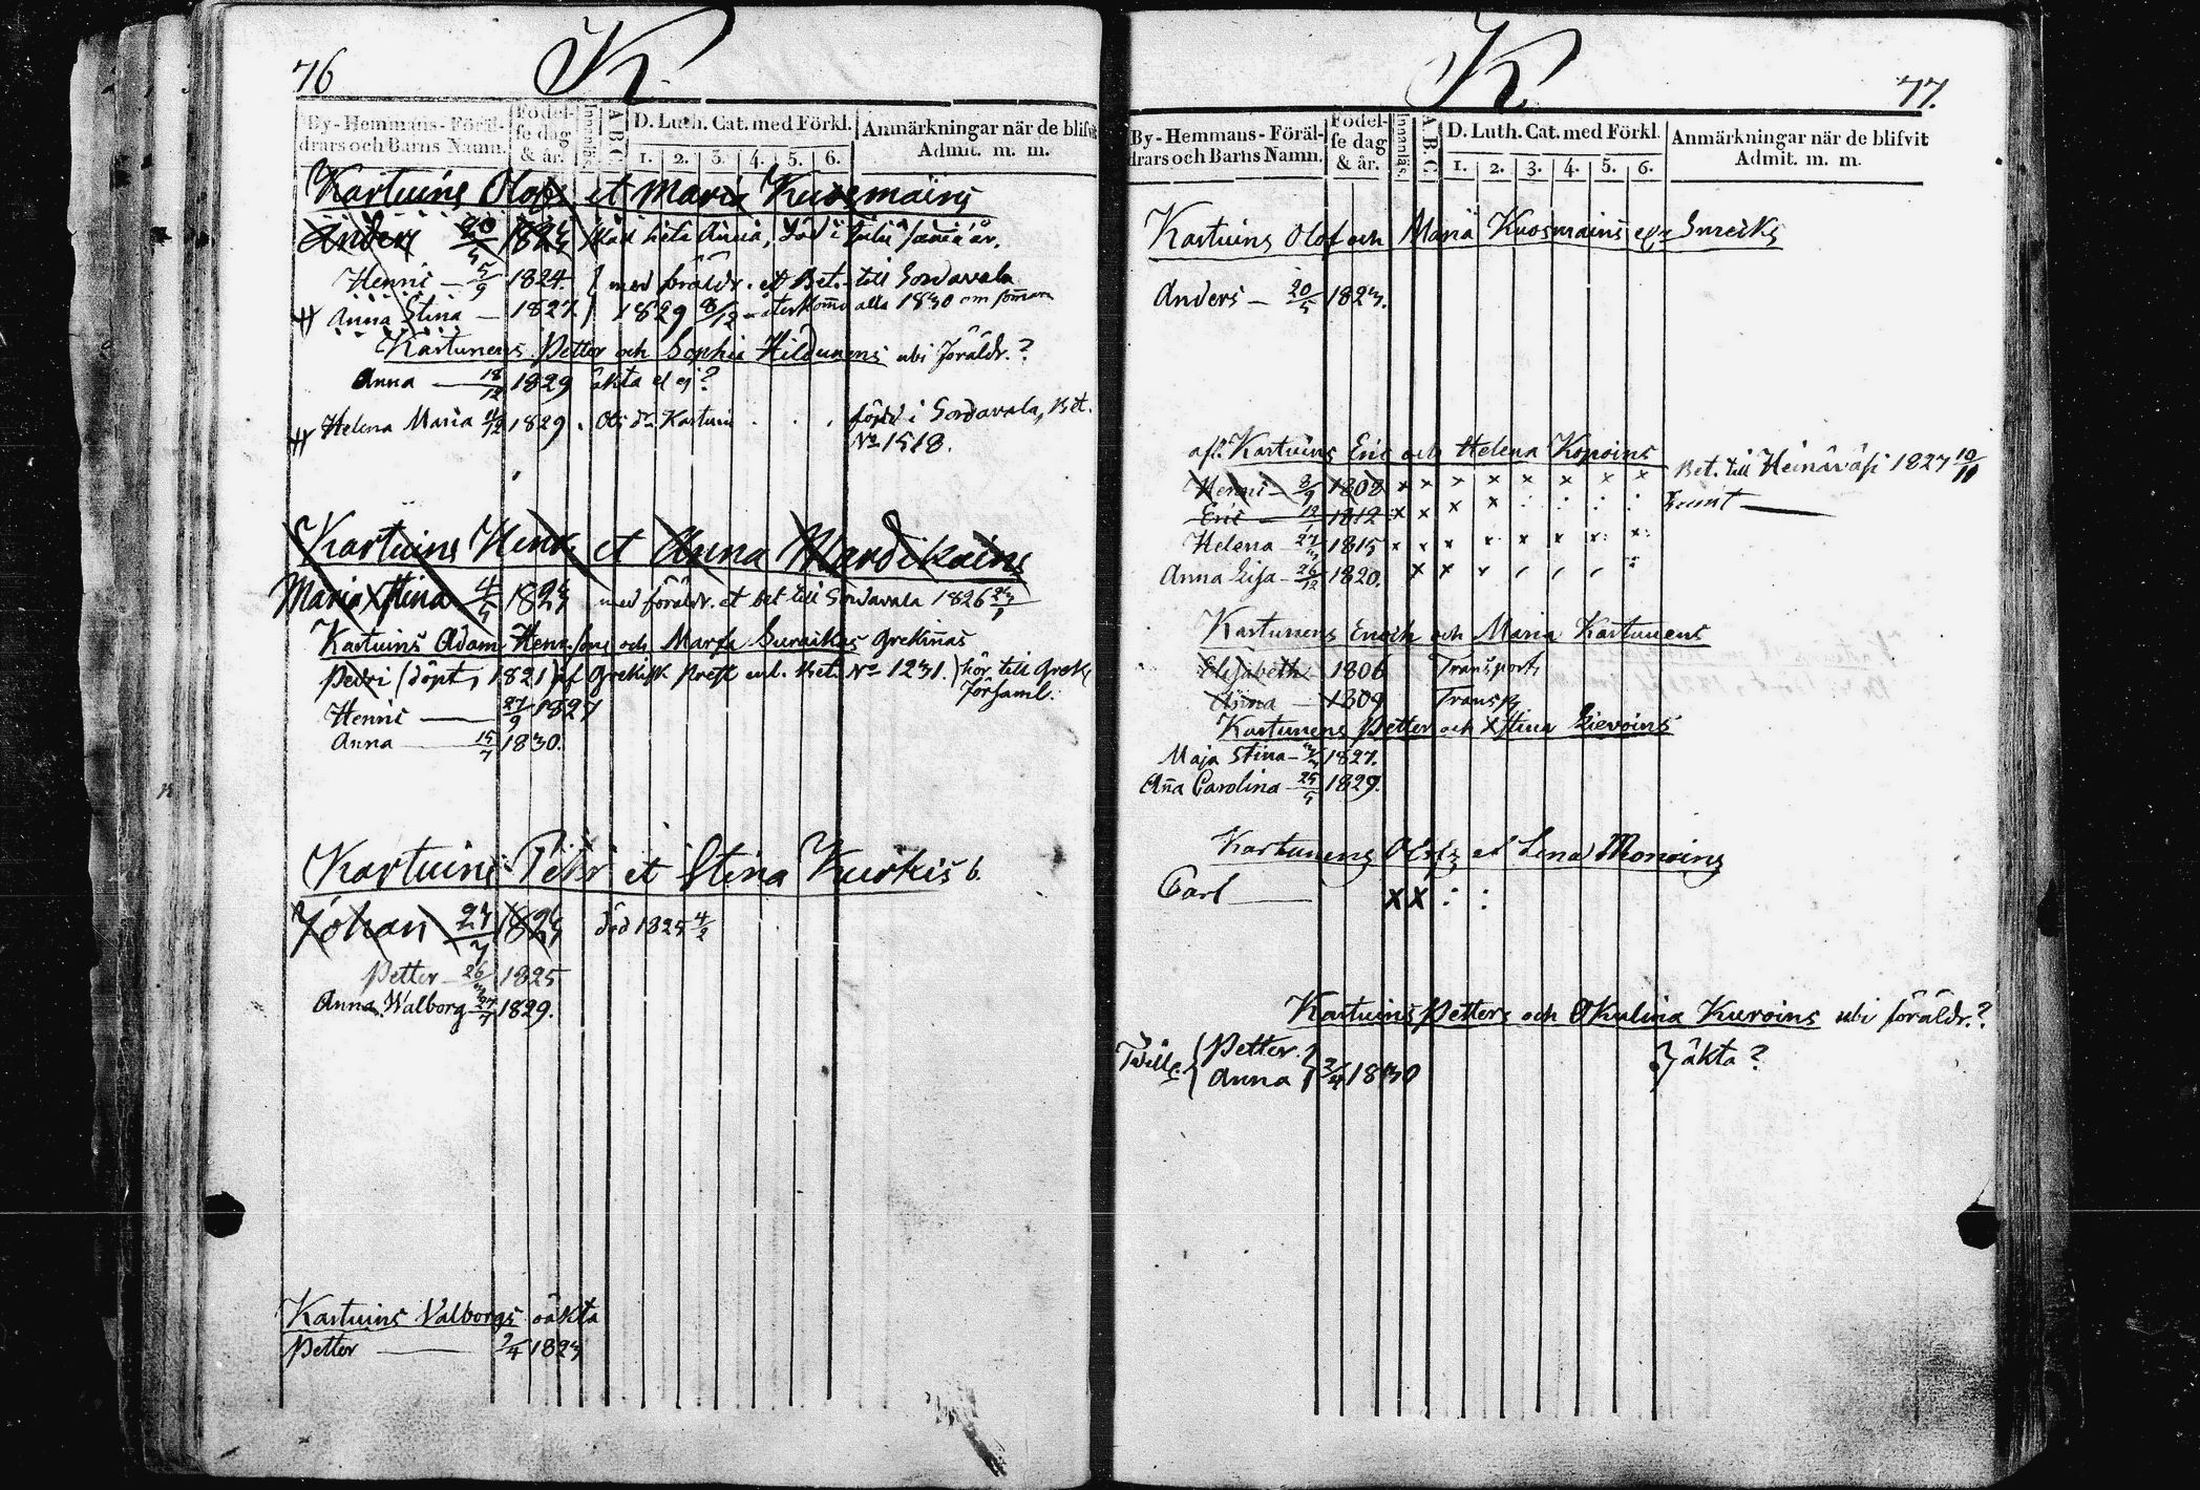 76
K.
By-Hemmans-Föräl-
drars och Barns Namn.
Födel-
se dag
& år.
Innanläs.
A.B.C.
D. Luth. Cat. med Förkl.
1. 2. 3. 4. 5. 6.
Anmärkningar när de blifvit
Admit. m. m.
Kartuins Olofs et Maria Kuosmains
Anders 20/5 182 skall heta Anna, död i Julii samma år.
Henric 5/9 1824. med föräldr. et Bet. till Sordavala
Anna Stina 1827 1829 8/12 återkom̄o alla 1830 om som̄aren
Kartunens Petter och Sophia Hildunens ubi föräldr.?
Anna 18/12 1829 äkta el ej?
Helena Maria 1829. Ols dr Kartuin . . . född i Sordavala, Bet.
No 1518.
Kartuins Henr. et Anna Mardikains
Maria Stina 4/5 182 med föräldr. et bet till Sordavala 1826
Kartuins Adam Henr. sons och Marfa Suraikas Grekin̄as
Pedri (döpt, 1821) af Grekisk Prest enl. Bet. No 1231.) hör till Grek.
församl.
Henric 27/9 1827
Anna 15/7 1830.
Kartuins Pehr et Stina Kurkis b.
Johan 27/7 182 död 1825 4/2
Petter 26 1825
Anna Walborg 27/7 1829.
Kartuins Valborgs oäkta
Petter 2/4 1823
K
77.
By-Hemmans-Föräl-
drars och Barns Namn.
Födel-
se dag
& år.
Innanläs.
A.B.C.
D. Luth. Cat. med Förkl.
1. 2. 3. 4. 5. 6.
Anmärkningar när de blifvit
Admit. m. m.
Kartuins Olof och Maria Kuosmains
Anders 20/5 1823.
afl. Kartuins Eric och Helena Kopoins Bet. till Heinäväsi 1827 10/11
Henric 8/9 1808 x x x x x x x x
Eric 12 1812 x x x x : : : :
Helena 27 1815 x x x x x x x: x:
Anna Lisa 26/12 1820. x x
Kartunens Enoch och Maria Kartunens
Elisabeth 1806 Transport.
Anna 1809 Transp.
Kartunens Petter och Xstina Lievoins
Maja Stina 1827.
An̄a Carolina 25/5 1829.
Kartunens Olofs et Lena Monoins
Carl x x : :
Kartuins Petters och Okulina Kuroins ubi föräldr.?
Twill. Petter.
Anna 3/4 1830 äkta?